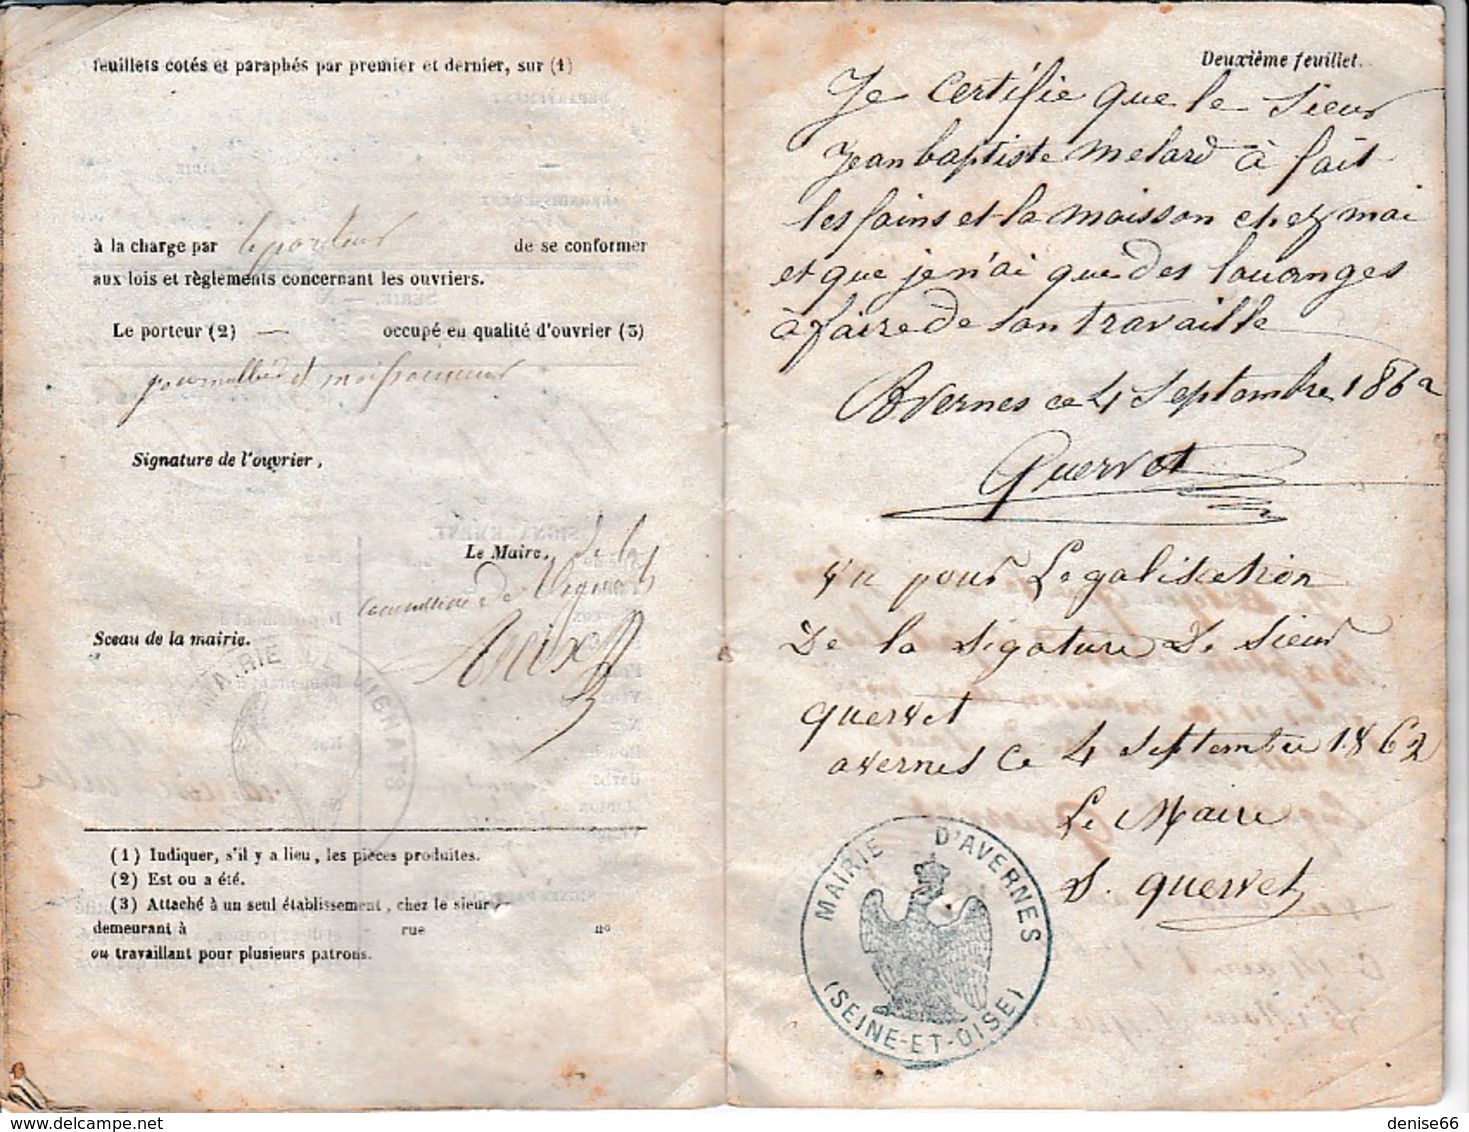 feuillets cotés et paraphés par premier et dernier, sur (1)
à la charge par le porteur de se conformer
aux lois et règlements concernant les ouvriers.
Le porteur (2) — occupé en qualité d'ouvrier (3)
journallier et moissonneur
Signature de l'ouvrier,
Le Maire, de la
commune de Vignats
Sceau de la mairie.
MAIRIE DE VIGNATS
(1) Indiquer, s'il y a lieu, les pièces produites.
(2) Est ou a été.
(3) Attaché à un seul établissement, chez le sieur
demeurani à rue nº
ou travaillant pour plusieurs patrons.
Deuxième feuillet.
Je certifie que le sieur
Jean baptiste melard à fait
les foins et la moisson chez moi
et que je n'ai que des louanges
à faire de son travaille
Avernes ce 4 Septembre 1862
Quervet
vu pour Legalisation
De la sigature De sieur
quervet
avernes ce 4 septembre 1862
Le Maire
D. quervet
MAIRIE D'AVERNES
(SEINE-ET-OISE)
denise66